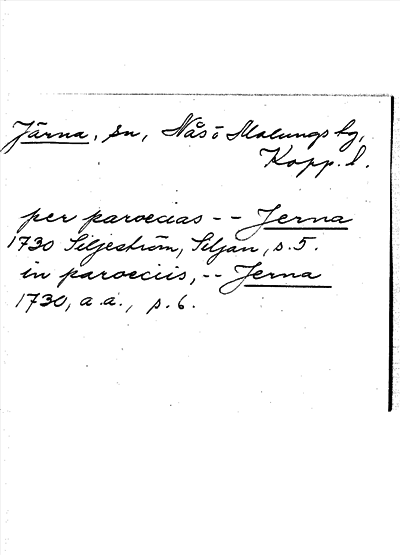 Järna, sn, Nås o Malungs hg,
Kopp. l.
per paroecias -- Jerna
1730 Siljeström, Siljan, s. 5.
in paroeciis, -- Jerna
1730, a.a., s. 6.